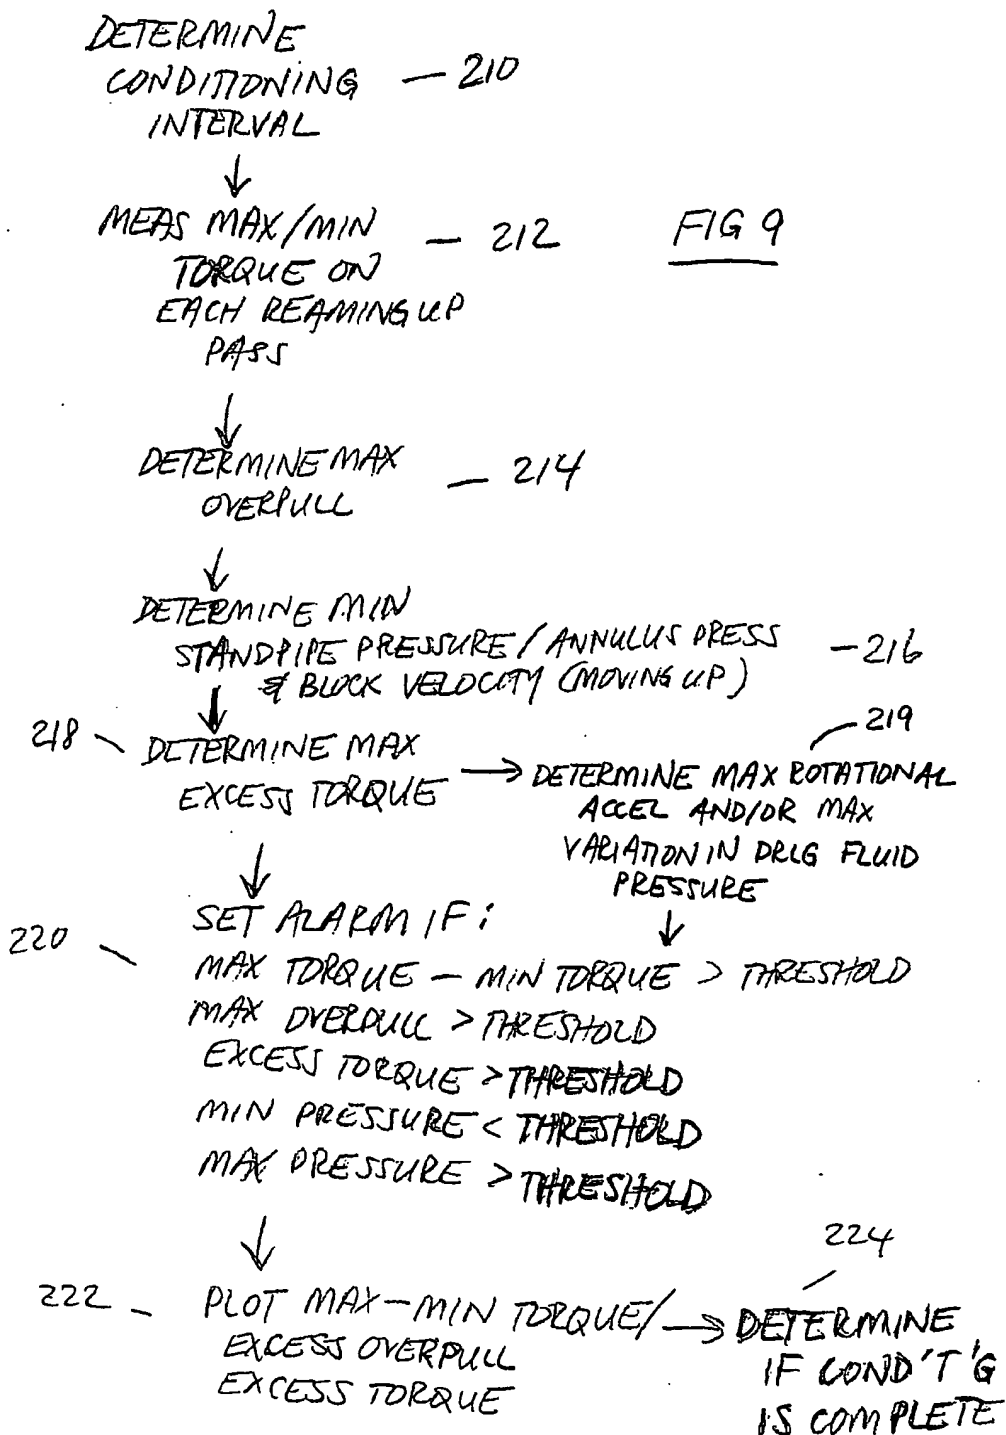 DETERMINE
CONDITIONING — 210
INTERVAL
MEAS MAX/MIN — 212
FIG 9
TORQUE ON
EACH REAMING UP
PASS
DETERMINE MAX — 214
OVERPULL
DETERMINE MIN
STANDPIPE PRESSURE / ANNULUS PRESS — 216
& BLOCK VELOCITY (MOVING UP)
218
DETERMINE MAX
EXCESS TORQUE
219
DETERMINE MAX ROTATIONAL
ACCEL AND/OR MAX
VARIATION IN DRLG FLUID
PRESSURE
220
SET ALARM IF:
MAX TORQUE — MIN TORQUE > THRESHOLD
MAX OVERPULL > THRESHOLD
EXCESS TORQUE > THRESHOLD
MIN PRESSURE < THRESHOLD
MAX PRESSURE > THRESHOLD
222
PLOT MAX—MIN TORQUE/
EXCESS OVERPULL
EXCESS TORQUE
224
DETERMINE
IF COND'T'G
IS COMPLETE